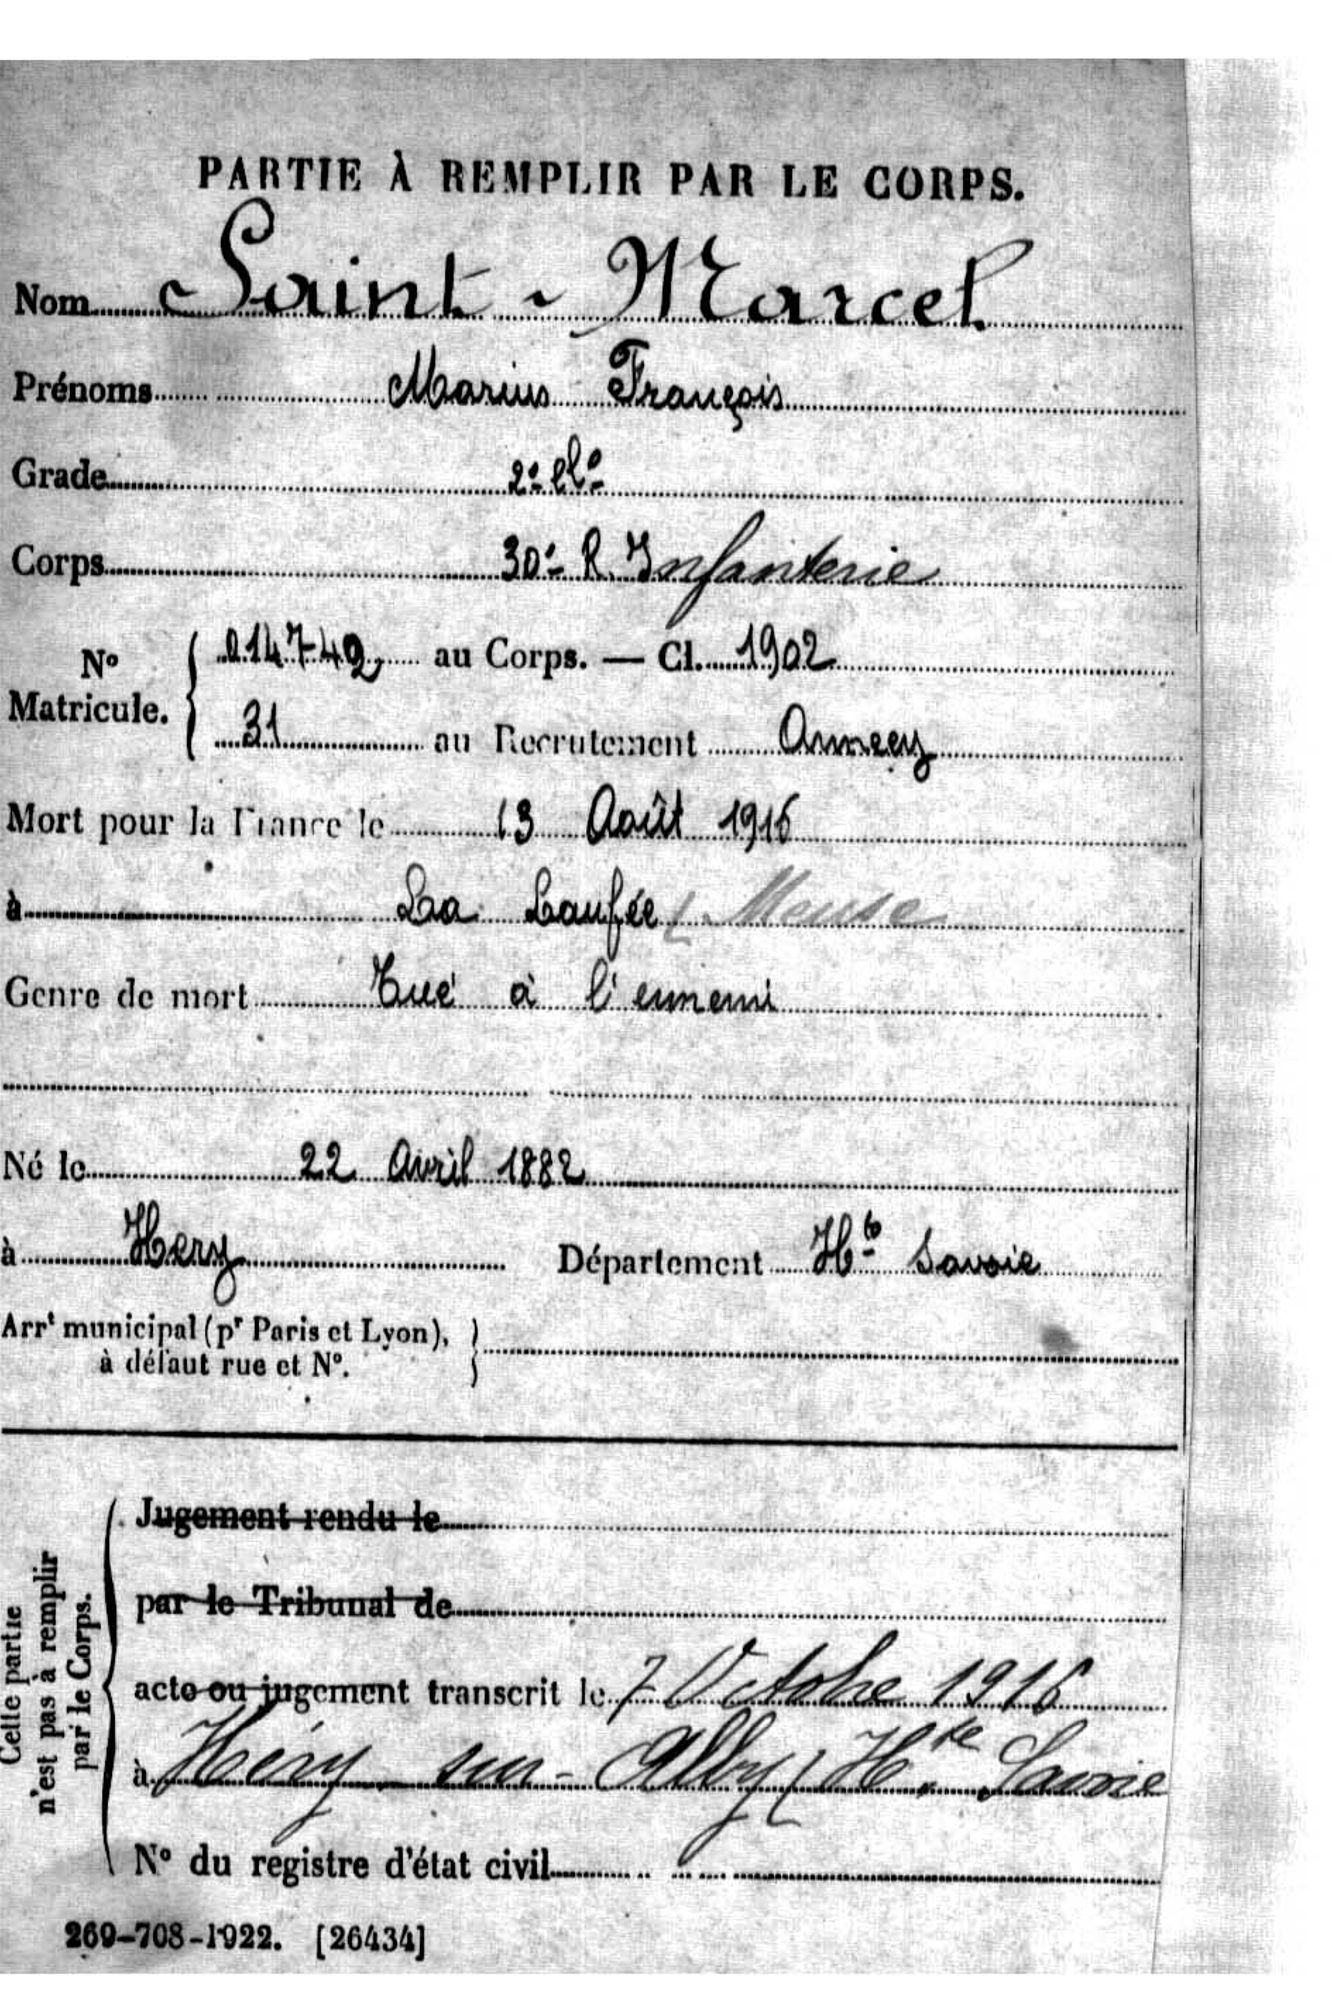 PARTIE À REMPLIR PAR LE CORPS.
Nom Saint-Marcel
Prénoms Marius François
Grade 2e Cl.e
Corps 30e R. Infanterie
No Matricule. { 014749 au Corps. — Cl. 1902
31 au Recrutement Annecy
Mort pour la France le 13 Août 1916
à La Laufée (Meuse
Genre de mort Tué à l'ennemi
Né le 22 Avril 1882
à Hery Département Hte Savoie
Arrt municipal (pr Paris et Lyon), }
à défaut rue et No.
Cette partie
n'est pas à remplir
par le Corps.
Jugement rendu le
par le Tribunal de
acte ou jugement transcrit le 7 Octobre 1916
à Héry-sur-Alby (Hte Savoie
No du registre d'état civil
269-708-1922. [26434]